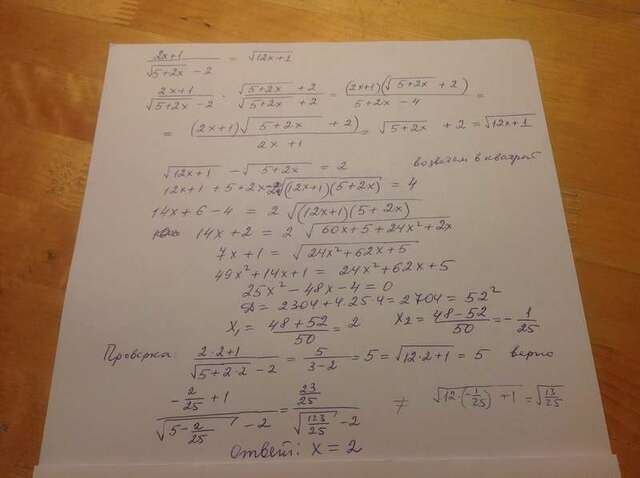 (2x+1)/(√(5+2x) - 2) = √(12x+1)
(2x+1)/(√(5+2x) - 2) · (√(5+2x) + 2)/(√(5+2x) + 2) = ((2x+1)(√(5+2x) + 2))/(5+2x-4) =
= ((2x+1)(√(5+2x) + 2))/(2x+1) = √(5+2x) + 2 = √(12x+1)
√(12x+1) - √(5+2x) = 2 возведем в квадрат
12x+1 + 5+2x - 2√((12x+1)(5+2x)) = 4
14x+6-4 = 2√((12x+1)(5+2x))
14x+2 = 2√(60x+5+24x²+2x)
7x+1 = √(24x²+62x+5)
49x²+14x+1 = 24x²+62x+5
25x²-48x-4=0
D = 2304+4·25·4=2704=52²
x₁ = (48+52)/50 = 2 x₂ = (48-52)/50 = -1/25
Проверка (2·2+1)/(√(5+2·2) - 2) = 5/(3-2) = 5 = √(12·2+1) = 5 верно
(-2/25 + 1)/(√(5-2/25) - 2) = (23/25)/(√(123/25) - 2) ≠ √(12·(-1/25)+1) = √(13/25)
Ответ: x=2